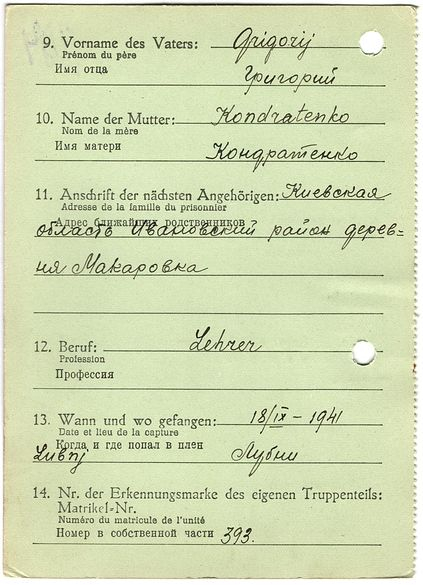 9. Vorname des Vaters: Grigorij
Prénom du père
Имя отца Григорий
10. Name der Mutter: Kondratenko
Nom de la mère
Имя матери Кондратенко
11. Anschrift der nächsten Angehörigen: Киевская
Adresse de la famille du prisonnier
Адрес ближайших родственников
область Ивановский район дерев=
ня Макаровка
12. Beruf: Lehrer
Profession
Профессия
13. Wann und wo gefangen: 18/IX - 1941
Date et lieu de la capture
Когда и где попал в плен
Lubnj Лубни
14. Nr. der Erkennungsmarke des eigenen Truppenteils:
Matrikel-Nr.
Numéro du matricule de l'unité
Номер в собственной части 393.